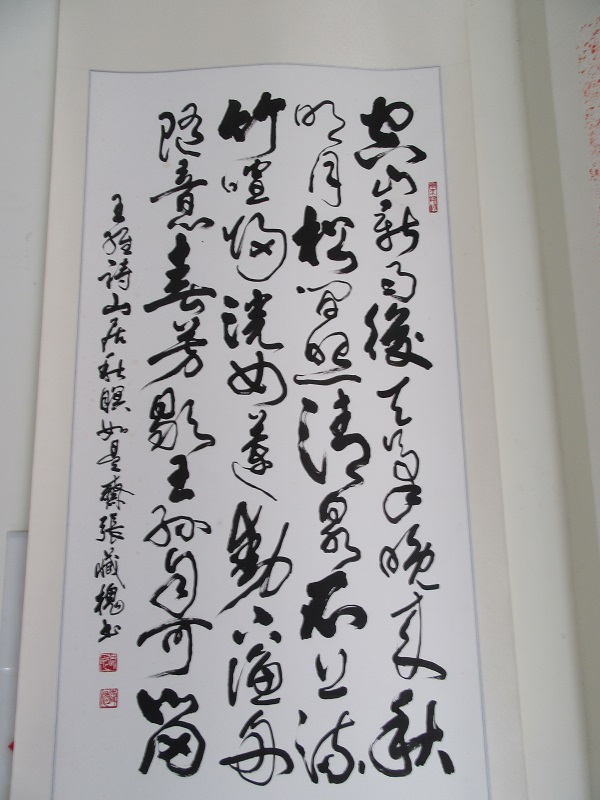 空山新雨後天氣晚来秋
明月松間照清泉石上流
竹喧歸浣女蓮動下漁舟
随意春芳歇王孫自可留
王維詩山居秋暝如是齋張藏槐书